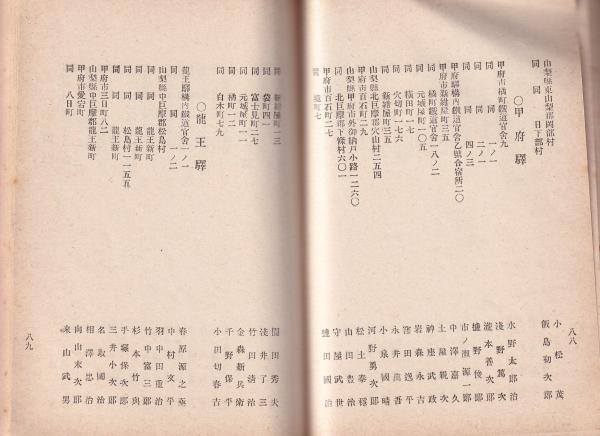 八八
山梨縣東山梨郡岡部村 小松茂
同 同 日下部村 飯島初次郎
○甲府驛
甲府市橘町鐵道官舎九 水野太郎治
同 同 一ノ一 淺野篤次
同 同 二ノ一 瀧本善次郎
同 同 四ノ三 盛野俊郎
甲府驛構內鐵道官舎乙號合宿所二〇 市ノ瀨源一郎
甲府市新紺屋町三五 中澤嘉久
同 橘町鐵道官舎一八ノ二 土屋親次
同 元城屋町一〇五 神座武政
同 橫田町一七 岩森永吉
同 穴切町一六七 窪田逸平
同 新紺屋町三五 永井萬吾
山梨縣北巨摩郡穴山村二五四 小泉順晴
甲府市百石町二九 河野勇次郎
山梨縣甲府市外御納戸小路一二六〇 松土泰穩
同 北巨摩郡下條村六〇一 山田豊治
甲府市百石町二 守屋武世
同 町七 鹽田國治
同 新紺屋町一三 園田秀夫
同 袋町四一 淺井了三
同 富士見町二七 竹田清治
同 元城屋町一 金森新兵衛
同 橘町一二 千野保平
同 白木町七九 小田切春吉
○龍王驛
龍王驛構內鐵道官舎一ノ一 春原源之亟
同 同 一ノ二 中村友平
山梨縣中巨摩郡松島村 羽中田重治
同 同 龍王新町 竹中富三郎
同 同 龍王新町 杉本竹與
同 同 松島村一一五五 手塚保次郎
同 同 龍王新町 三井小次郎
甲府市三日町八二 名取國治
山梨縣中巨摩郡龍王新町 相澤忠治
甲府市愛宕町 向山末次郎
同 八日町 来山武男
八九